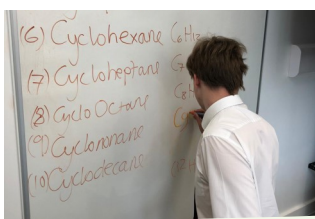 (6) Cyclohexane C6H12
(7) Cycloheptane C7
(8) Cyclo Octane C8H
(9) Cyclononane C9
(10) Cyclodecane